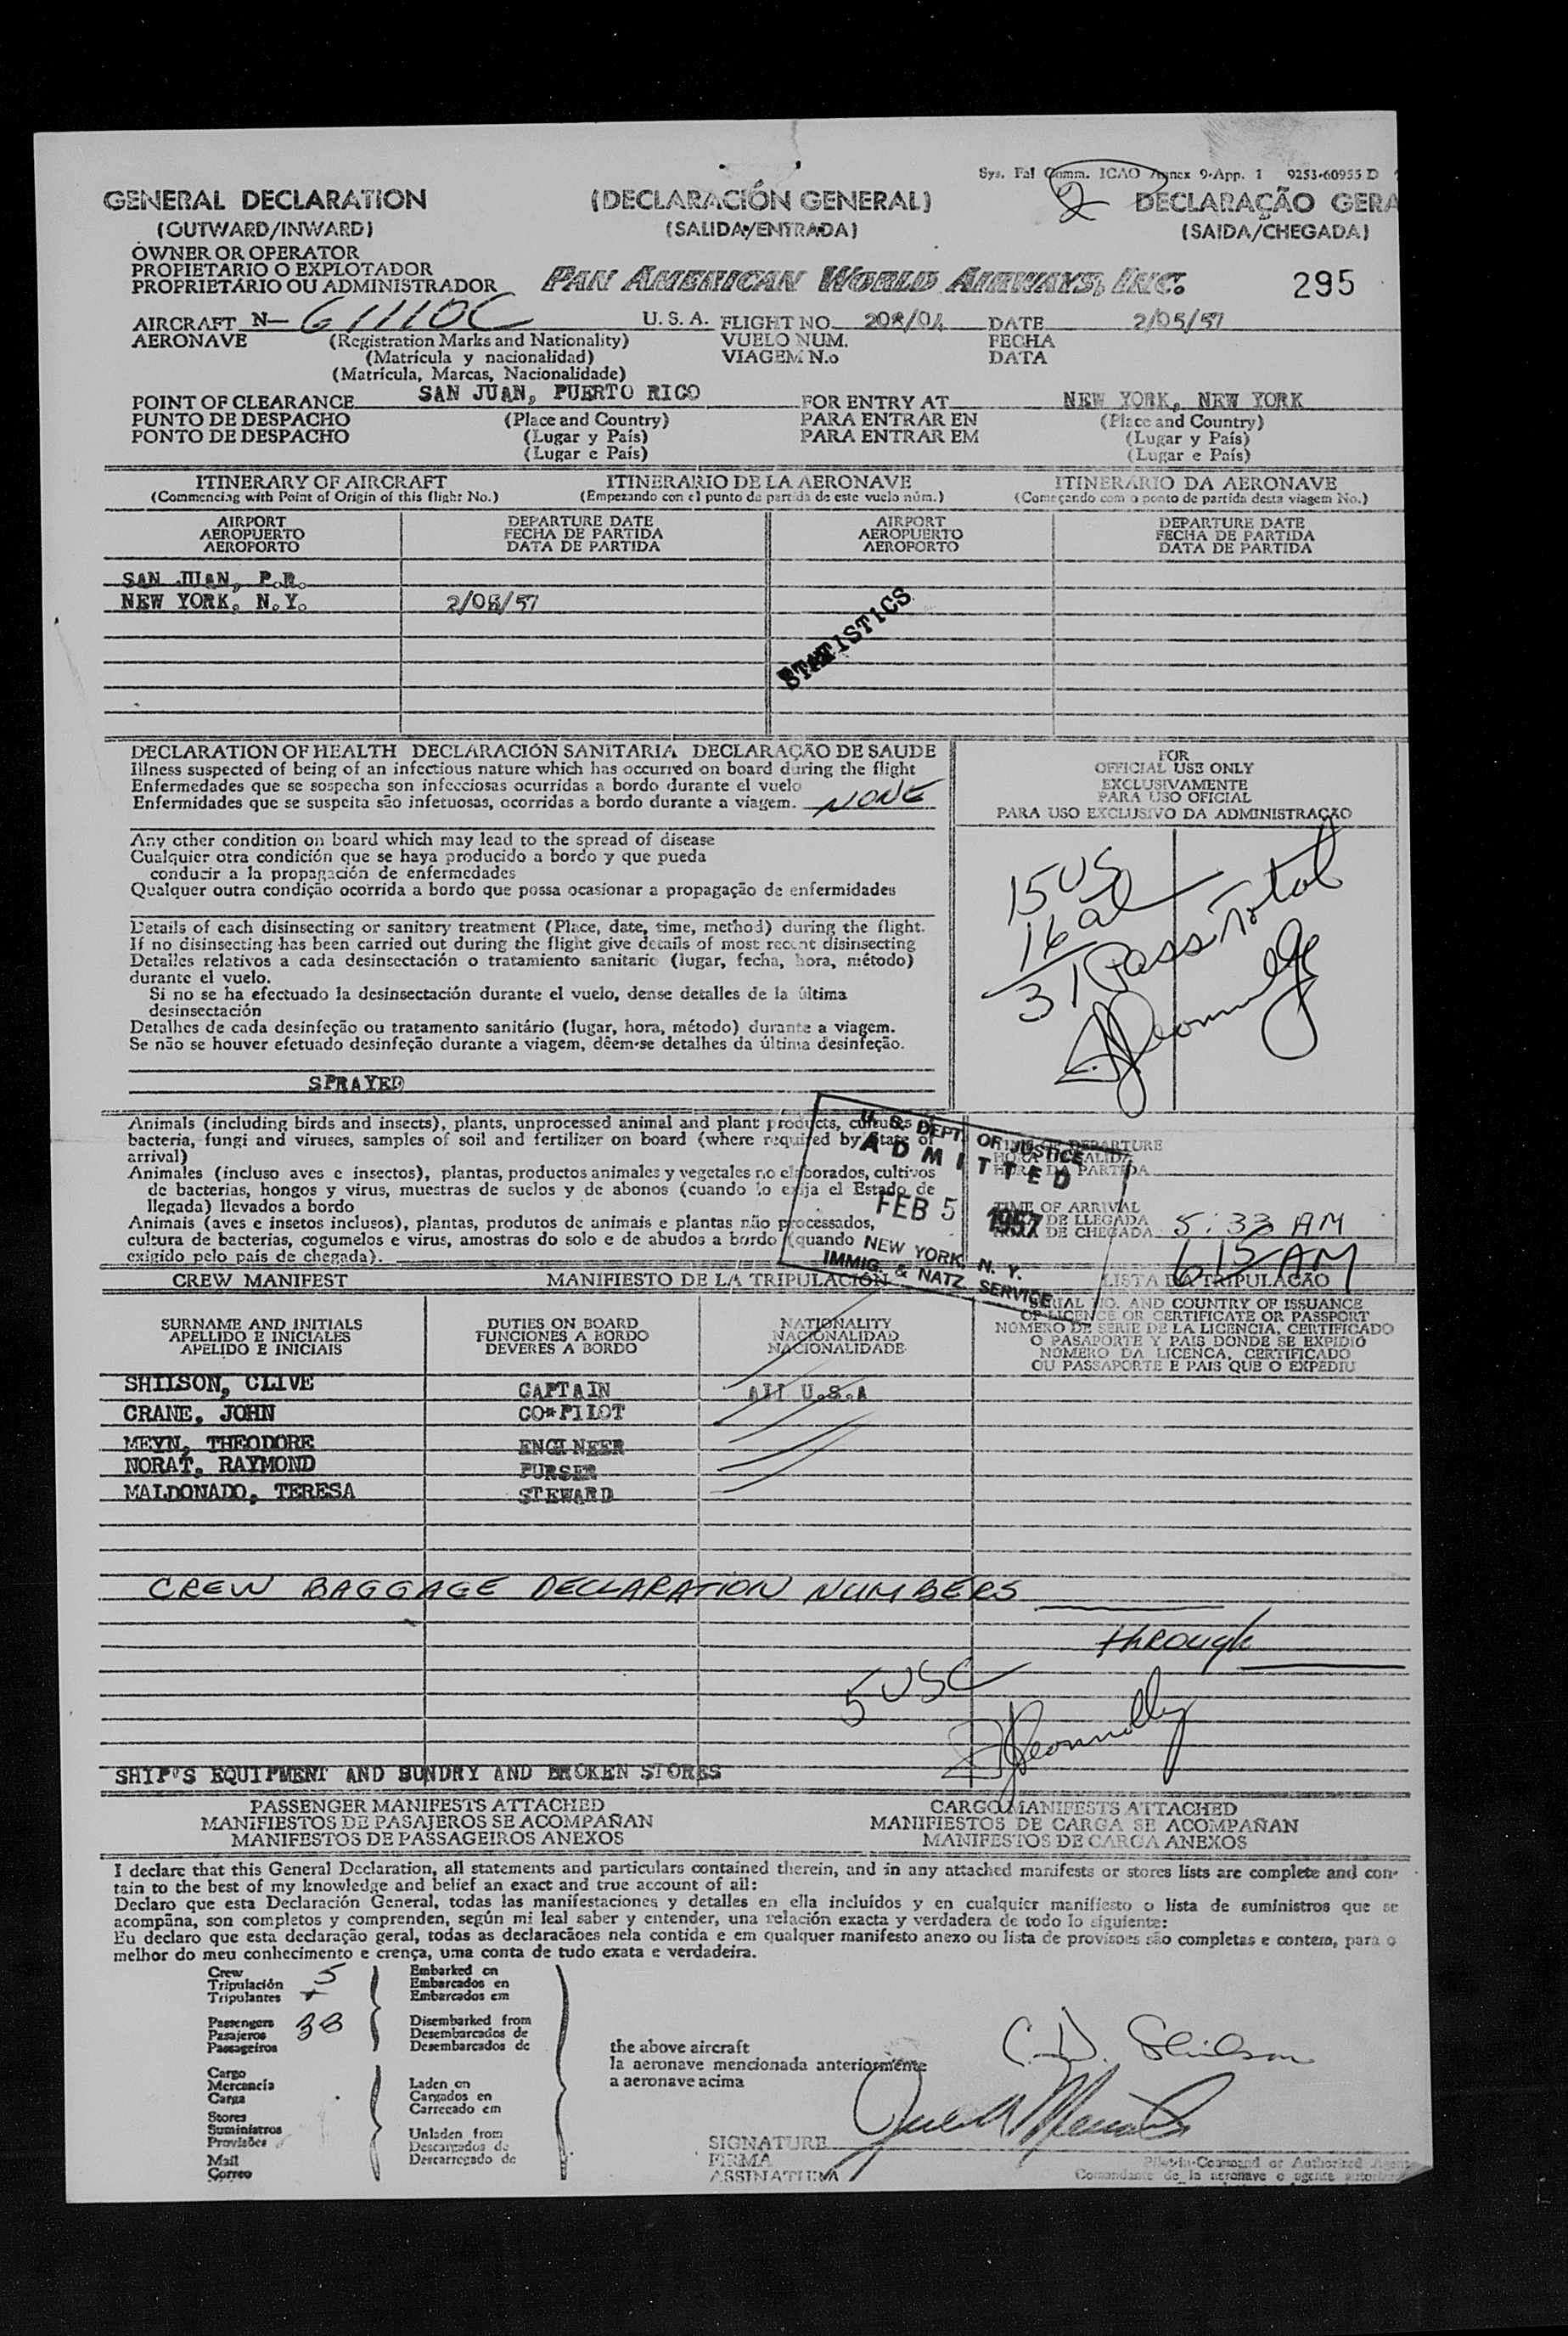 Sys. Fal Comm. ICAO Annex 9-App. 1 9253-60955 D
2
GENERAL DECLARATION (DECLARACIÓN GENERAL) DECLARAÇÃO GERA
(OUTWARD/INWARD) (SALIDA/ENTRADA) (SAIDA/CHEGADA)
OWNER OR OPERATOR
PROPIETARIO O EXPLOTADOR
PROPRIETÁRIO OU ADMINISTRADOR PAN AMERICAN WORLD AIRWAYS, INC. 295
AIRCRAFT N- 61110C U.S.A. FLIGHT NO. 208/04 DATE 2/05/57
AERONAVE (Registration Marks and Nationality) VUELO NUM. FECHA
(Matrícula y nacionalidad) VIAGEM N.o DATA
(Matrícula, Marcas, Nacionalidade)
POINT OF CLEARANCE SAN JUAN, PUERTO RICO FOR ENTRY AT NEW YORK, NEW YORK
PUNTO DE DESPACHO (Place and Country) PARA ENTRAR EN (Place and Country)
PONTO DE DESPACHO (Lugar y País) PARA ENTRAR EM (Lugar y País)
(Lugar e País) (Lugar e País)
ITINERARY OF AIRCRAFT ITINERARIO DE LA AERONAVE ITINERÁRIO DA AERONAVE
(Commencing with Point of Origin of this flight No.) (Empezando con el punto de partida de este vuelo núm.) (Começando com o ponto de partida desta viagem No.)
AIRPORT DEPARTURE DATE AIRPORT DEPARTURE DATE
AEROPUERTO FECHA DE PARTIDA AEROPUERTO FECHA DE PARTIDA
AEROPORTO DATA DE PARTIDA AEROPORTO DATA DE PARTIDA
SAN JUAN, P.R.
NEW YORK, N.Y. 2/05/57
STATISTICS
DECLARATION OF HEALTH DECLARACIÓN SANITARIA DECLARAÇÃO DE SAUDE
Illness suspected of being of an infectious nature which has occurred on board during the flight
Enfermedades que se sospecha son infecciosas ocurridas a bordo durante el vuelo
Enfermidades que se suspeita são infetuosas, ocorridas a bordo durante a viagem. NONE
Any other condition on board which may lead to the spread of disease
Cualquier otra condición que se haya producido a bordo y que pueda
conducir a la propagación de enfermedades
Qualquer outra condição ocorrida a bordo que possa ocasionar a propagação de enfermidades
Details of each disinsecting or sanitary treatment (Place, date, time, method) during the flight.
If no disinsecting has been carried out during the flight give details of most recent disinsecting
Detalles relativos a cada desinsectación o tratamiento sanitario (lugar, fecha, hora, método)
durante el vuelo.
Si no se ha efectuado la desinsectación durante el vuelo, dense detalles de la última
desinsectación
Detalhes de cada desinfeção ou tratamento sanitário (lugar, hora, método) durante a viagem.
Se não se houver efetuado desinfeção durante a viagem, dêem-se detalhes da última desinfeção.
SPRAYED
FOR
OFFICIAL USE ONLY
EXCLUSIVAMENTE
PARA USO OFICIAL
PARA USO EXCLUSIVO DA ADMINISTRAÇÃO
15 US
16 al
31 Pass Total
Animals (including birds and insects), plants, unprocessed animal and plant products, cultures of
bacteria, fungi and viruses, samples of soil and fertilizer on board (where required by State of
arrival)
Animales (incluso aves e insectos), plantas, productos animales y vegetales no elaborados, cultivos
de bacterias, hongos y virus, muestras de suelos y de abonos (cuando lo exija el Estado de
llegada) llevados a bordo
Animais (aves e insetos inclusos), plantas, produtos de animais e plantas não processados,
cultura de bacterias, cogumelos e virus, amostras do solo e de abudos a bordo (quando
exigido pelo país de chegada).
U. S. DEPT. OF JUSTICE
ADMITTED
FEB 5 1957
NEW YORK, N. Y.
IMMIG. & NATZ. SERVICE
TIME OF DEPARTURE
HORA DE SALIDA
HORA DA PARTIDA
TIME OF ARRIVAL
DE LLEGADA 5:33 AM
DE CHEGADA 615 AM
CREW MANIFEST MANIFIESTO DE LA TRIPULACIÓN LISTA DA TRIPULAÇÃO
SURNAME AND INITIALS DUTIES ON BOARD NATIONALITY SERIAL NO. AND COUNTRY OF ISSUANCE
APELLIDO E INICIALES FUNCIONES A BORDO NACIONALIDAD OF LICENCE OR CERTIFICATE OR PASSPORT
APELIDO E INICIAIS DEVERES A BORDO NACIONALIDADE NÚMERO DE SERIE DE LA LICENCIA, CERTIFICADO
O PASAPORTE Y PAIS DONDE SE EXPIDIÓ
NÚMERO DA LICENCA, CERTIFICADO
OU PASSAPORTE E PAIS QUE O EXPEDIU
SHILSON, CLIVE CAPTAIN All U.S.A
CRANE, JOHN CO*PILOT
MEYN, THEODORE ENGINEER
NORAT, RAYMOND PURSER
MALDONADO, TERESA STEWARD
CREW BAGGAGE DECLARATION NUMBERS
through
5 USC
SHIP'S EQUIPMENT AND SUNDRY AND BROKEN STORES
PASSENGER MANIFESTS ATTACHED CARGO MANIFESTS ATTACHED
MANIFIESTOS DE PASAJEROS SE ACOMPAÑAN MANIFIESTOS DE CARGA SE ACOMPAÑAN
MANIFESTOS DE PASSAGEIROS ANEXOS MANIFESTOS DE CARGA ANEXOS
I declare that this General Declaration, all statements and particulars contained therein, and in any attached manifests or stores lists are complete and con-
tain to the best of my knowledge and belief an exact and true account of all:
Declaro que esta Declaración General, todas las manifestaciones y detalles en ella incluídos y en cualquier manifiesto o lista de suministros que se
acompãna, son completos y comprenden, según mi leal saber y entender, una relación exacta y verdadera de todo lo siguiente:
Eu declaro que esta declaração geral, todas as declaracãoes nela contida e em qualquer manifesto anexo ou lista de provisoes são completas e contem, para o
melhor do meu conhecimento e crença, uma conta de tudo exata e verdadeira.
Crew 5 Embarked on
Tripulación Embarcados en
Tripulantes Embarcados em
Passengers 38 Disembarked from
Pasajeros Desembarcados de
Passageiros Desembarcados de
the above aircraft
la aeronave mencionada anteriormente
a aeronave acima
C. D. Shilson
Cargo
Mercancía Laden on
Carga Cargados en
Carregado em
Stores
Suministros Unladen from
Provisões Descargados de
Mail Descarregado de
Correo
SIGNATURE
FIRMA
ASSINATURA
Pilot-in-Command or Authorized Agent
Comandante de la aeronave o agente autoriza